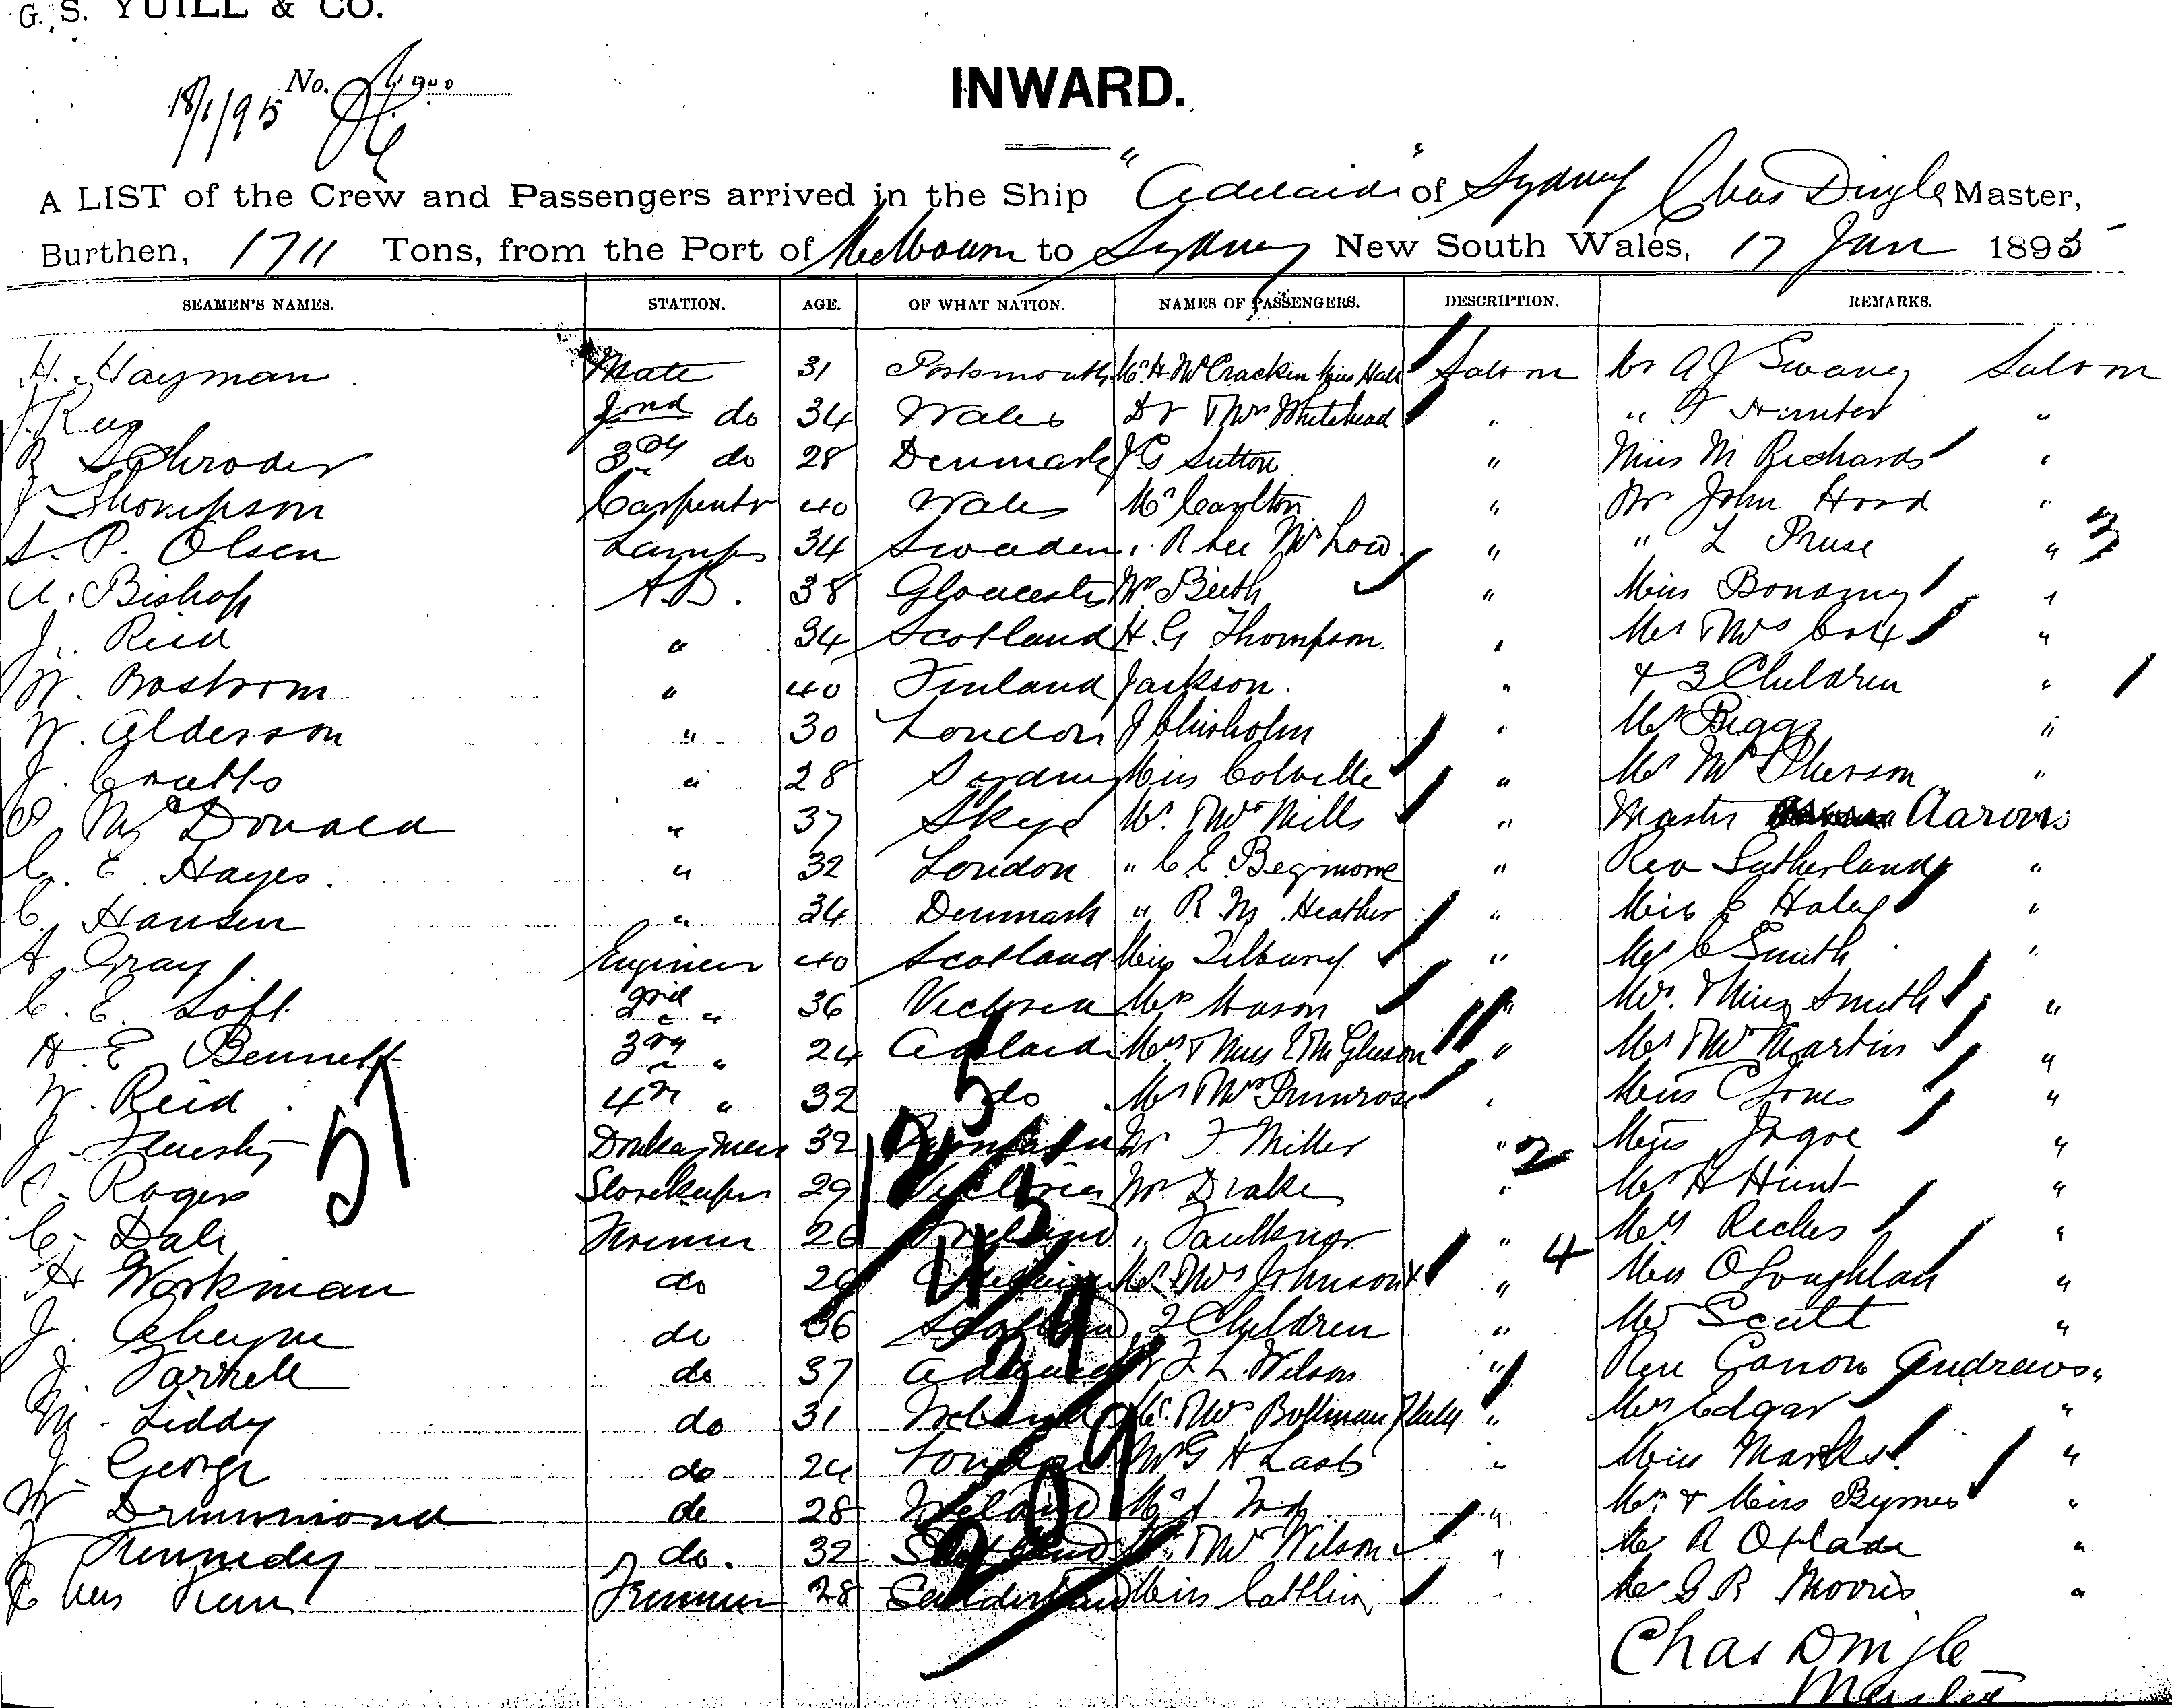 G. S. YUILL & CO.
No.
18/1/95
INWARD.
A LIST of the Crew and Passengers arrived in the Ship "Adelaide" of Sydney Chas Dingle Master,
Burthen, 1711 Tons, from the Port of Melbourne to Sydney New South Wales, 17 Jan 1895
SEAMEN'S NAMES. STATION. AGE. OF WHAT NATION. NAMES OF PASSENGERS. DESCRIPTION. REMARKS.
H. Hayman Mate 31 Portsmouth Mr H. McCracken Miss Hall Saloon Mr A J Swaney Saloon
34 Wales Dr & Mrs Whitehead " " Hunter "
Schroder 3rd do 28 Denmark J G Sutton " Miss M Richards "
J Thompson Carpenter 40 Wales Mr Carlton " Mr John Hood "
P. Olsen Lamps 34 Sweden " R Lee Mr Low " " L Pruse " 3
A. Bishop A.B. 38 Gloucester Mr Beith " Miss Bonamy "
J. Reid " 34 Scotland H. G Thompson. " Mr & Mrs Cox "
W. Bostrom " 40 Finland Jackson. " & 3 Children "
W. Alderson " 30 London J Chisholm " Mr Biggs "
J. " 28 Sydney Miss Colville " Mr McPherson "
McDonald " 37 Skye Mr. & Mrs Mills " Master Aarons
C. E. Hayes. " 32 London " C. E. " Rev Sutherland "
C. Hansen " 34 Denmark " R M Heather " Miss E Haley "
A Gray Engineer 40 Scotland Miss Tilbury " Mr C Smith "
C. E. Loft 2nd " 36 Victoria Mrs Mason " Mrs. & Miss Smith "
H. E Bennett 3rd " 24 Adelaide Mrs & Miss E M Gleeson " Mr & Mrs Martin "
W. Reid 4th " 32 do Mr & Mrs Primrose " Miss C Jones "
J. Donkeyman 32 Mr F Miller " 2 Miss "
Rogers Storekeeper 29 Victoria Mr Drake " Mr H Hunt "
C. Dale Fireman 26 Ireland " Faulkner " 4 Mrs "
H Workman do Mr. & Mrs Johnson & " Miss O'Loughlan "
J. Cheyne do 36 Scotland 2 Children " Mr Scutt "
J. Farrell do 37 Adelaide Mr F. L. Wilson " Rev Canon Andrews "
M. Liddy do 31 Ireland Mr. & Mrs " Mrs Edgar "
J. George do 24 London Mr G H " Miss Marks "
W Drummond do 28 Ireland " Mr. & Miss Byrnes "
J Kennedy do. 32 Mr. & Mrs Wilson " Mr R Oxlade "
28 Sunderland Miss Cattlin " Mr G R Morris "
57
Chas Dingle
Master